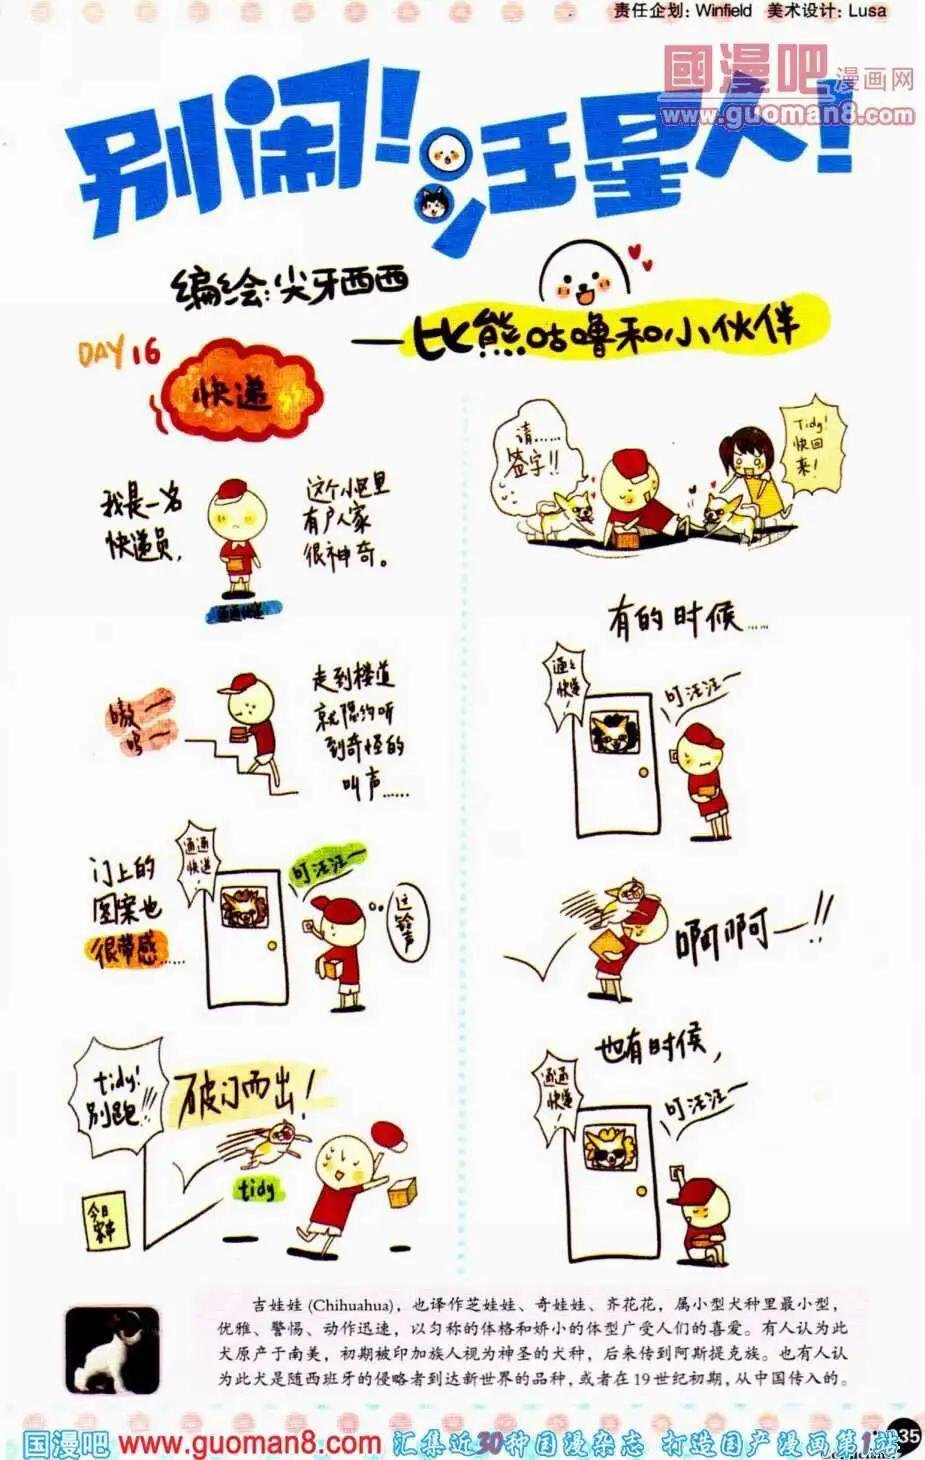 责任企划：Winfield 美术设计：Lusa
國漫吧 漫画网
www.guoman8.com
别闹！汪星人！
编绘：尖牙西西
——比熊咕噜和小伙伴
DAY 16
快递
我是一名
快递员，
这个小区里
有户人家
很神奇。
嗷——
呜～
走到楼道
就隐约听
到奇怪的
叫声……
门上的
图案也
很带感……
通通
快递
叮汪汪～
这
铃
声
tidy！
别跑!!!
破门而出！
tidy
今日
请……
签字!!
Tidy！
快回
来！
有的时候……
快递！
叮汪汪～
啊啊啊——!!
也有时候，
通通
快递
叮汪汪～
吉娃娃 (Chihuahua)，也译作芝娃娃、奇娃娃、齐花花，属小型犬种里最小型，
优雅、警惕、动作迅速，以匀称的体格和娇小的体型广受人们的喜爱。有人认为此
犬原产于南美，初期被印加族人视为神圣的犬种，后来传到阿斯提克族。也有人认
为此犬是随西班牙的侵略者到达新世界的品种，或者在19世纪初期，从中国传入的。
国漫吧 www.guoman8.com 汇集近30种国漫杂志 打造国产漫画第1站
35